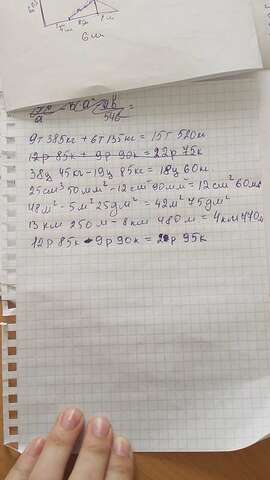 6 см
9т 385кг + 6т 135кг = 15т 520кг
12р 85к + 9р 90к = 22р 75к
38ц 45кг - 19ц 85кг = 18ц 60кг
25см² 50мм² - 12см² 90мм² = 12см² 60мм
48м² - 5м² 25дм² = 42м² 75дм²
13км 250м - 8км 480м = 4км 770м
12р 85к - 9р 90к = 2р 95к